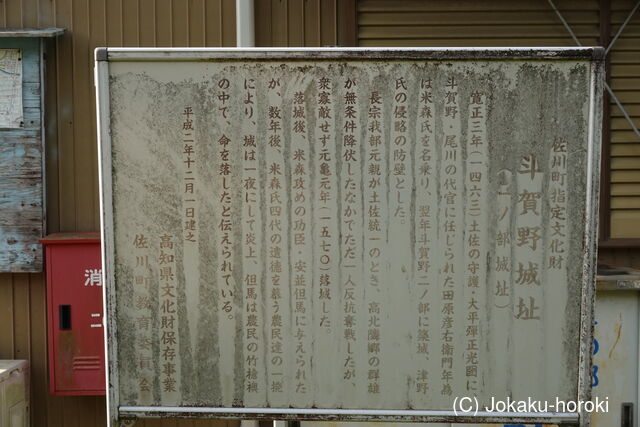 佐川町指定文化財
斗賀野城址
(二ノ部城址)
寛正三年(一四六三)土佐の守護・大平弾正光國に
斗賀野・尾川の代官に任じられた田原彦右衛門年為
は米森氏を名乗り、翌年斗賀野二ノ部に築城、津野
氏の侵略の防壁とした。
長宗我部元親が土佐統一のとき、高北隣郷の群雄
が無条件降伏したなかでただ一人反抗奪戦したが、
衆寡敵せず元亀元年(一五七〇)落城した。
落城後、米森攻めの功臣・安並但馬に与えられた
が、数年後、米森氏四代の遺徳を慕う農民達の一揆
により、城は一夜にして炎上、但馬は農民の竹槍襖
の中で、命を落したと伝えられている。
平成二年十二月一日建之
高知県文化財保存事業
佐川町教育委員会
消
(C) Jokaku-horoki